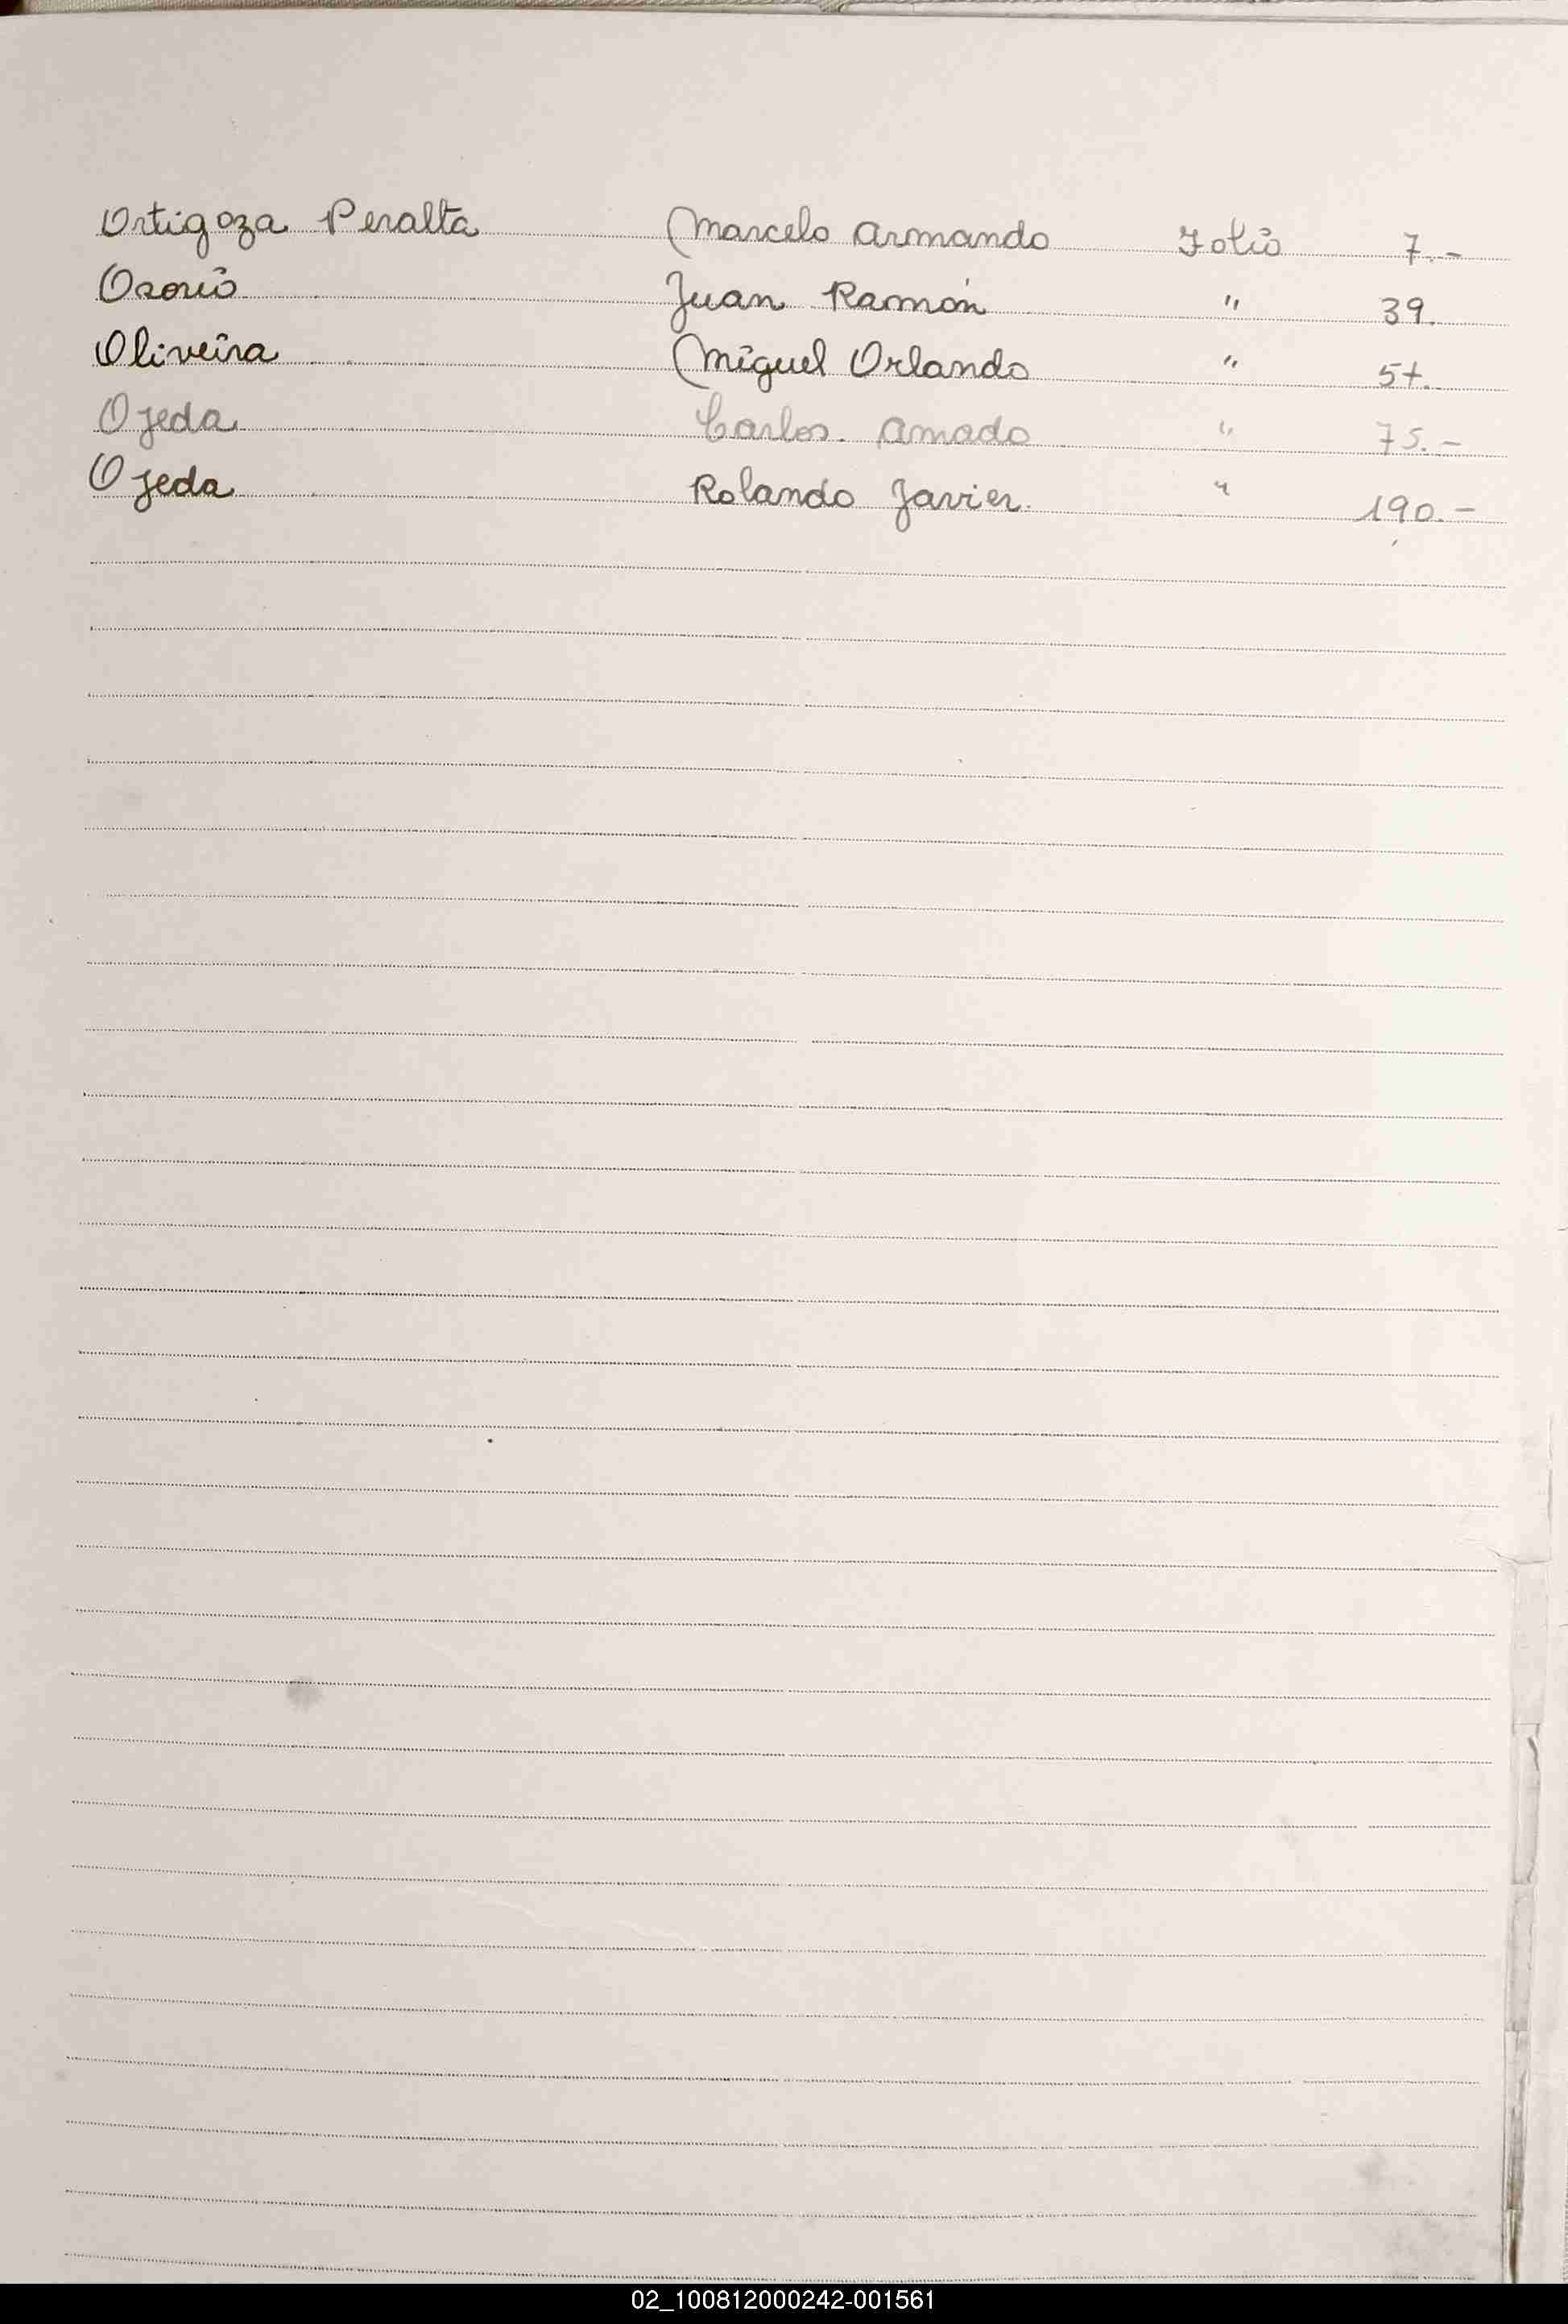 Ortigoza Peralta Marcelo Armando Folio 7.-
Osorio Juan Ramón " 39.
Oliveira Miguel Orlando " 57.
Ojeda Carlos. Amado " 75.-
Ojeda Rolando Javier. " 190.-
02_100812000242-001561